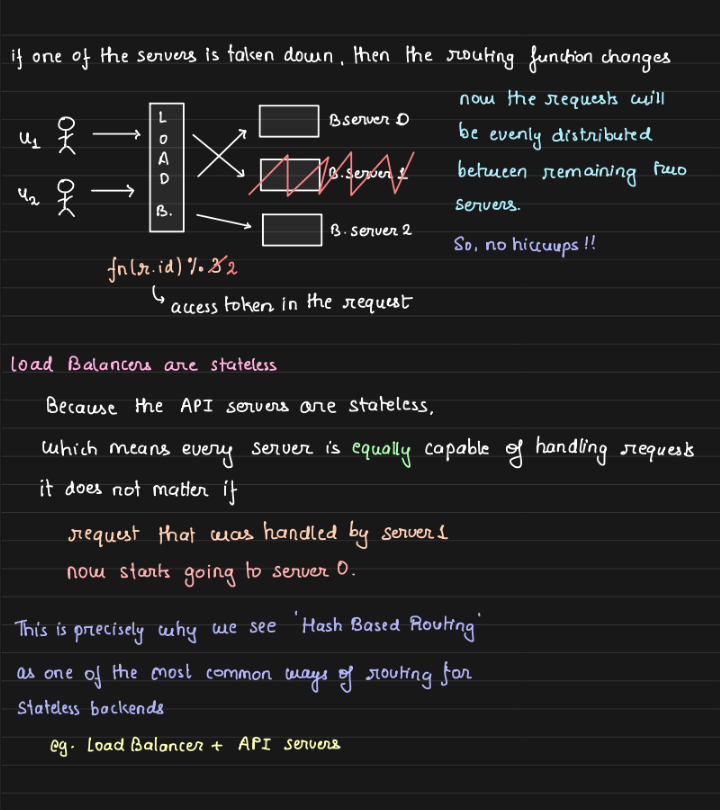 if one of the servers is taken down, then the routing function changes
now the requests will
be evenly distributed
between remaining two
servers.
So, no hiccups !!
u1
u2
LOAD B.
B server 0
B. server 1
B. server 2
fn(r.id) % 3 2
access token in the request
Load Balancers are stateless
Because the API servers are stateless,
which means every server is equally capable of handling requests
it does not matter if
request that was handled by server 1
now starts going to server 0.
This is precisely why we see 'Hash Based Routing'
as one of the most common ways of routing for
stateless backends
eg. Load Balancer + API servers